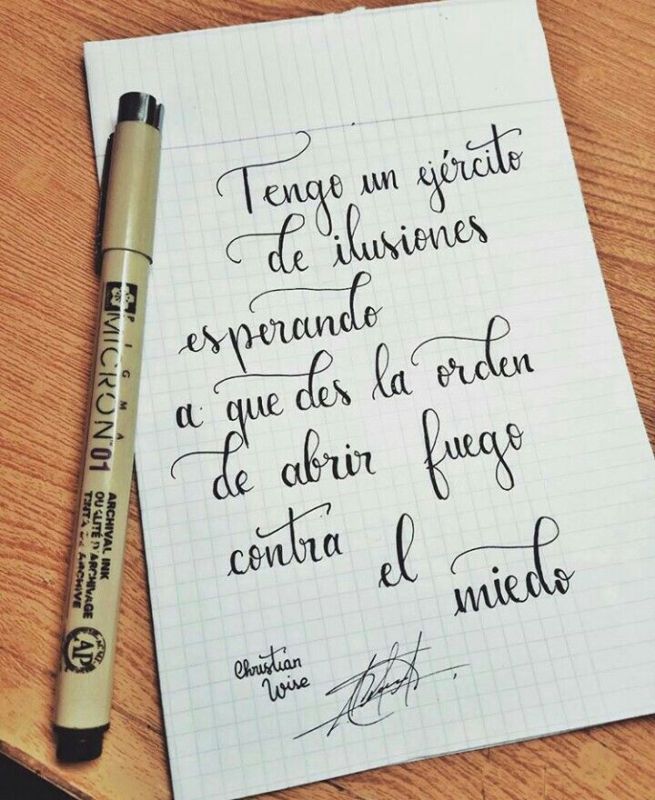 Tengo un ejército
de ilusiones
esperando
a que des la orden
de abrir fuego
contra el miedo
Christian
Wise
PIGMA
MICRON 01
ARCHIVAL INK
QUALITÉ D'ARCHIVAGE
TINTA DE ARCHIVE
AP